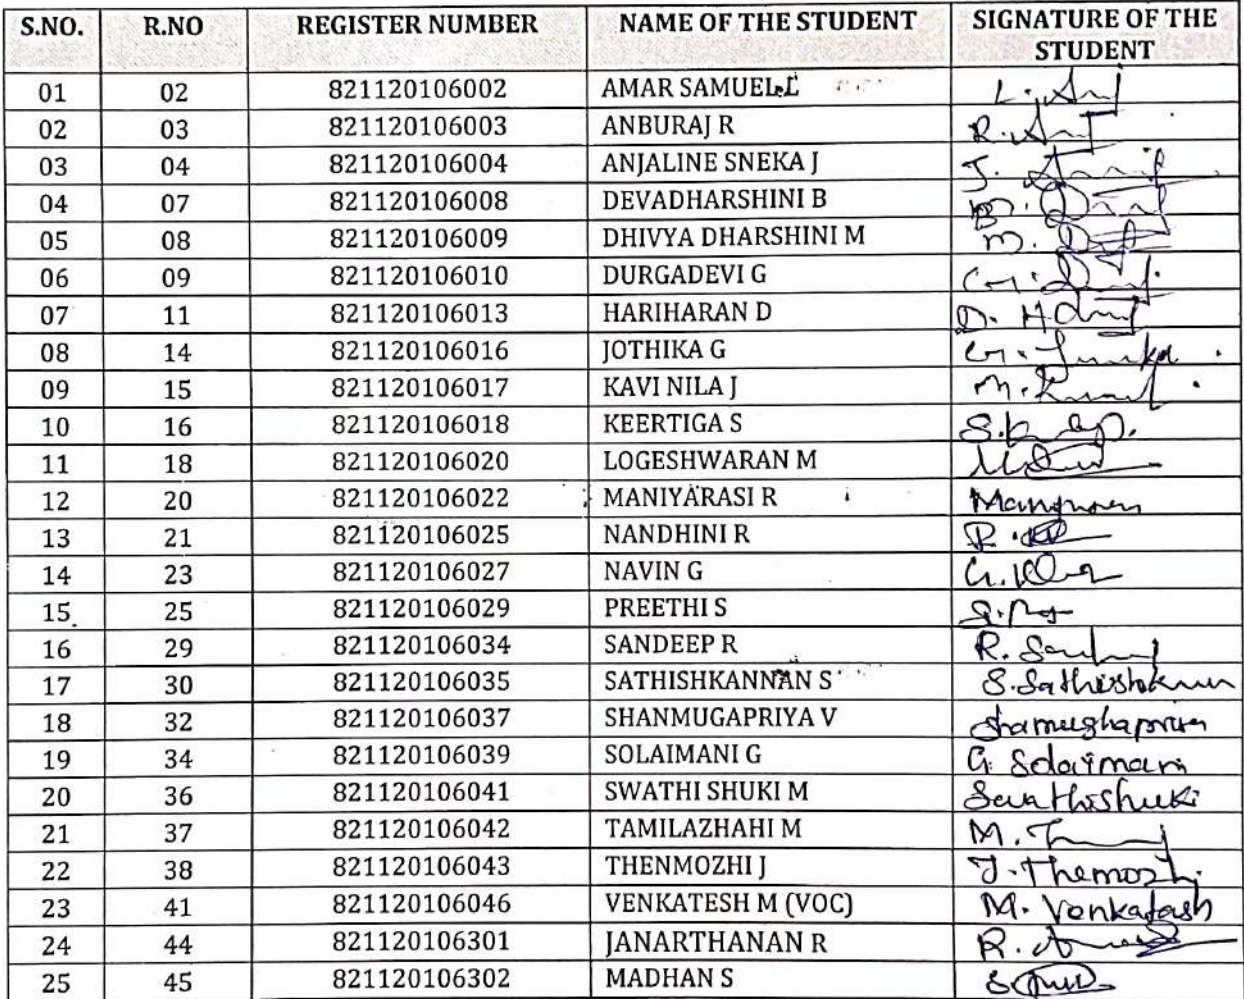 S.NO. R.NO REGISTER NUMBER NAME OF THE STUDENT SIGNATURE OF THE STUDENT
01 02 821120106002 AMAR SAMUEL.L
02 03 821120106003 ANBURAJ R
03 04 821120106004 ANJALINE SNEKA J
04 07 821120106008 DEVADHARSHINI B
05 08 821120106009 DHIVYA DHARSHINI M
06 09 821120106010 DURGADEVI G
07 11 821120106013 HARIHARAN D
08 14 821120106016 JOTHIKA G
09 15 821120106017 KAVI NILA J
10 16 821120106018 KEERTIGA S
11 18 821120106020 LOGESHWARAN M
12 20 821120106022 MANIYARASI R
13 21 821120106025 NANDHINI R
14 23 821120106027 NAVIN G
15 25 821120106029 PREETHI S
16 29 821120106034 SANDEEP R
17 30 821120106035 SATHISHKANNAN S
18 32 821120106037 SHANMUGAPRIYA V
19 34 821120106039 SOLAIMANI G G. Solaimani
20 36 821120106041 SWATHI SHUKI M Swathishuki
21 37 821120106042 TAMILAZHAHI M
22 38 821120106043 THENMOZHI J
23 41 821120106046 VENKATESH M (VOC) M. Venkatesh
24 44 821120106301 JANARTHANAN R
25 45 821120106302 MADHAN S